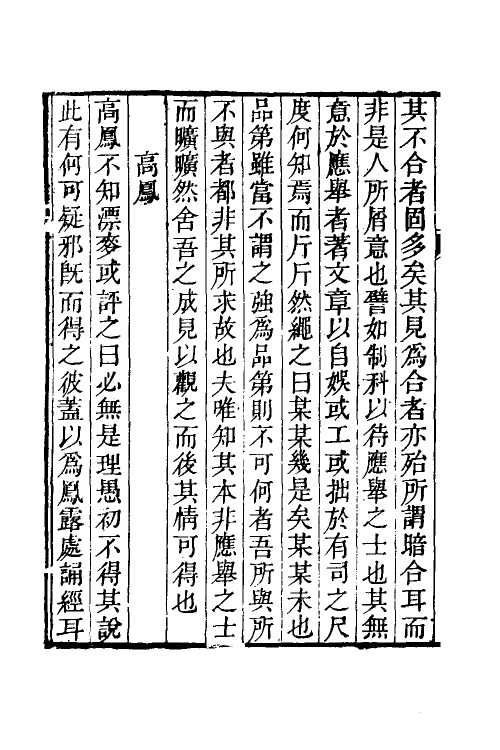 其不合者固多矣其見爲合者亦殆所謂暗合耳而
非是人所屑意也譬如制科以待應舉之士也其無
意於應舉者著文章以自娛或工或拙於有司之尺
度何知焉而斤斤然繩之曰某某幾是矣某某未也
品第雖當不謂之強爲品第則不可何者吾所與所
不與者都非其所求故也夫唯知其本非應舉之士
而曠曠然舍吾之成見以觀之而後其情可得也
高鳳
高鳳不知漂麥或評之曰必無是理愚初不得其說
此有何可疑邪旣而得之彼蓋以爲鳳露處誦經耳